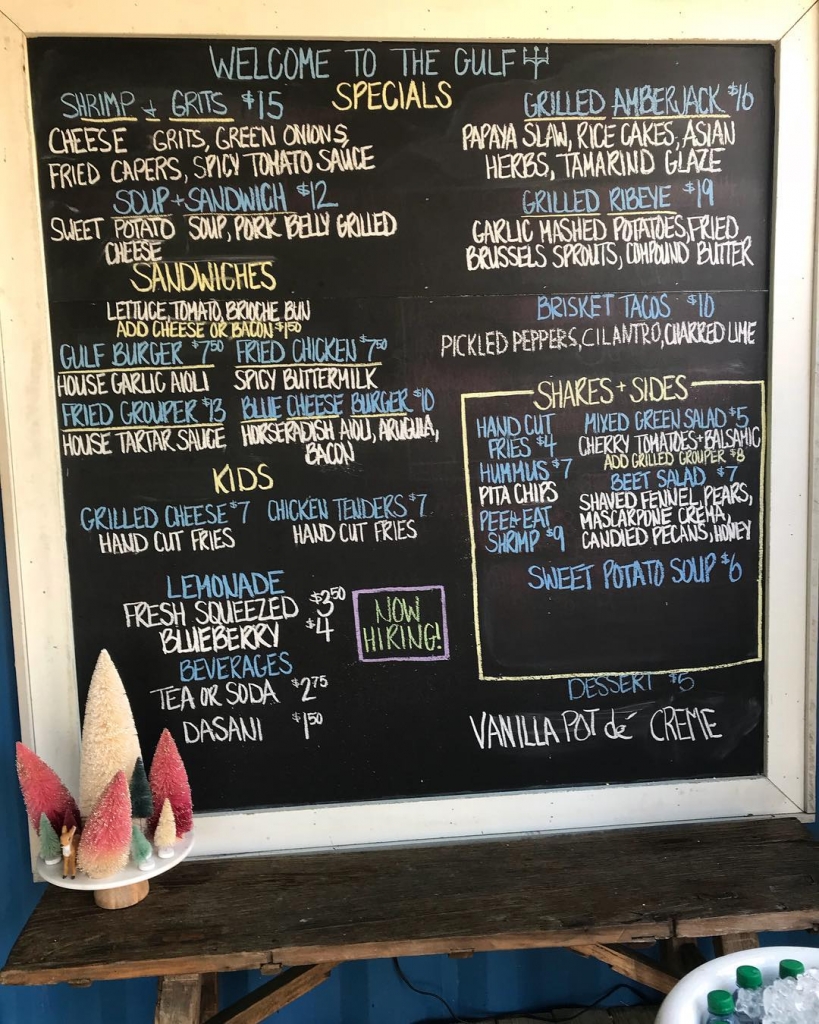 WELCOME TO THE GULF
SPECIALS
SHRIMP + GRITS $15
CHEESE GRITS, GREEN ONIONS,
FRIED CAPERS, SPICY TOMATO SAUCE
SOUP + SANDWICH $12
SWEET POTATO SOUP, PORK BELLY GRILLED
CHEESE
GRILLED AMBERJACK $16
PAPAYA SLAW, RICE CAKES, ASIAN
HERBS, TAMARIND GLAZE
GRILLED RIBEYE $19
GARLIC MASHED POTATOES, FRIED
BRUSSELS SPROUTS, COMPOUND BUTTER
BRISKET TACOS $10
PICKLED PEPPERS, CILANTRO, CHARRED LIME
SANDWICHES
LETTUCE, TOMATO, BRIOCHE BUN
ADD CHEESE OR BACON $1.50
GULF BURGER $7.50
HOUSE GARLIC AIOLI
FRIED CHICKEN $7.50
SPICY BUTTERMILK
FRIED GROUPER $13
HOUSE TARTAR SAUCE
BLUE CHEESE BURGER $10
HORSERADISH AIOLI, ARUGULA,
BACON
KIDS
GRILLED CHEESE $7
HAND CUT FRIES
CHICKEN TENDERS $7
HAND CUT FRIES
LEMONADE
FRESH SQUEEZED $3.50
BLUEBERRY $4
BEVERAGES
TEA OR SODA $2.75
DASANI $1.50
NOW
HIRING!
SHARES + SIDES
HAND CUT
FRIES $4
HUMMUS $7
PITA CHIPS
PEEL + EAT
SHRIMP $9
MIXED GREEN SALAD $5
CHERRY TOMATOES + BALSAMIC
ADD GRILLED GROUPER $8
BEET SALAD $7
SHAVED FENNEL, PEARS,
MASCARPONE CREMA,
CANDIED PECANS, HONEY
SWEET POTATO SOUP $6
DESSERT $5
VANILLA POT dé CREME